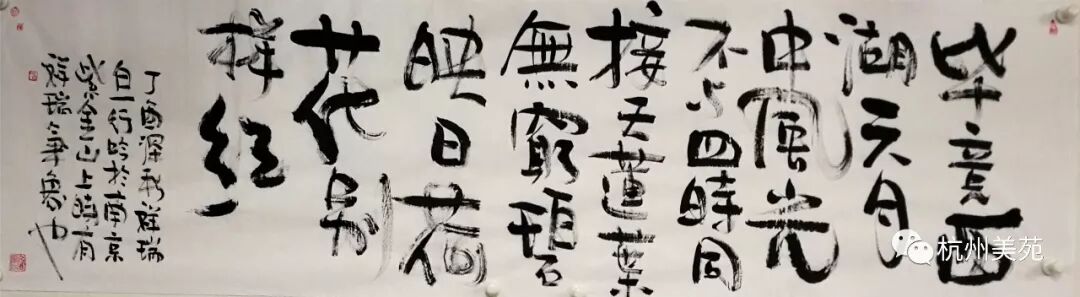 毕竟西
湖六月
中風光
不与四時同
接天蓮葉
無窮碧
映日荷
花别
样红
丁酉深秋祥瑞
自一行吟於南京
紫金山上時有
祥瑞也
杭州美苑